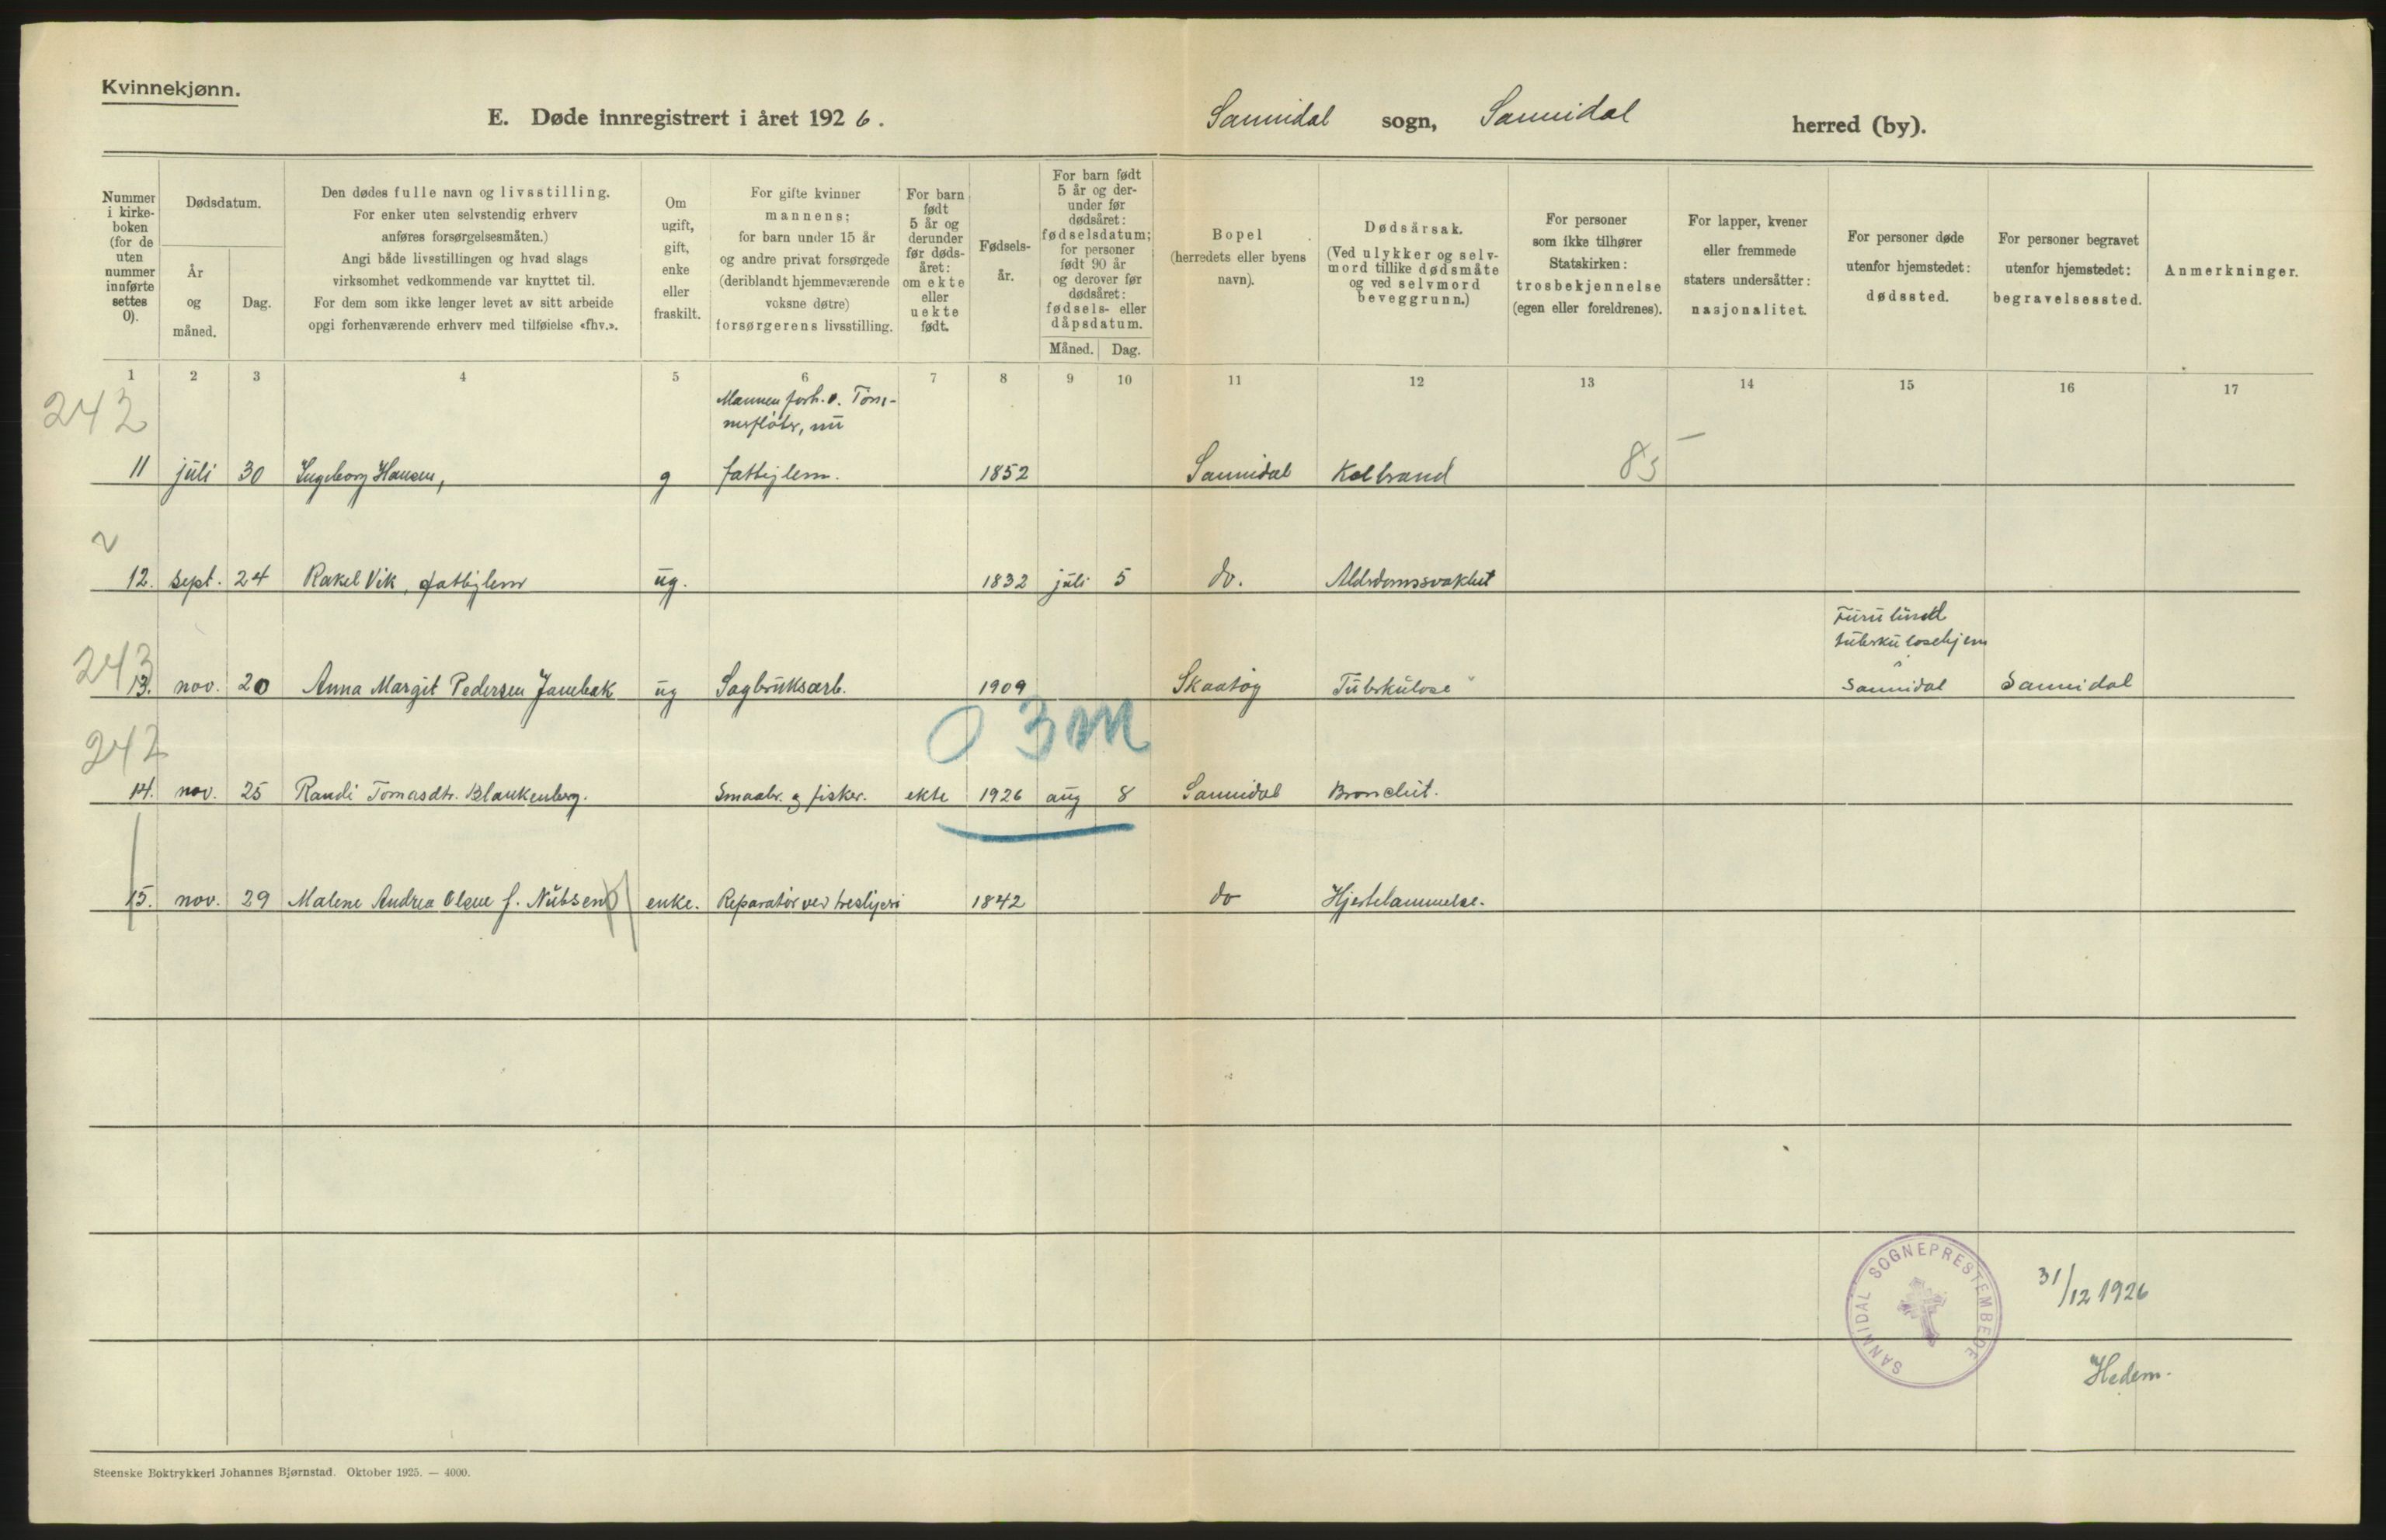 Kvinnekjønn.
E. Døde innregistrert i året 1926. Sannidal sogn, Sannidal herred (by).
Nummer
i kirke-
boken
(for de
uten
nummer
innførte
settes
0).
Dødsdatum.
År
og
måned.
Dag.
Den dødes fulle navn og livsstilling.
For enker uten selvstendig erhverv
anføres forsørgelsesmåten.)
Angi både livsstillingen og hvad slags
virksomhet vedkommende var knyttet til.
For dem som ikke lenger levet av sitt arbeide
opgi forhenværende erhverv med tilføielse «fhv.».
Om
ugift,
gift,
enke
eller
fraskilt.
For gifte kvinner
mannens;
for barn under 15 år
og andre privat forsørgede
(deriblandt hjemmeværende
voksne døtre)
forsørgerens livsstilling.
For barn
født
5 år og
derunder
før døds-
året:
om ekte
eller
uekte
født.
Fødsels-
år.
For barn født
5 år og der-
under før
dødsåret:
fødselsdatum;
for personer
født 90 år
og derover før
dødsåret:
fødsels- eller
dåpsdatum.
Måned. Dag.
Bopel
(herredets eller byens
navn).
Dødsårsak.
(Ved ulykker og selv-
mord tillike dødsmåte
og ved selvmord
beveggrunn.)
For personer
som ikke tilhører
Statskirken:
trosbekjennelse
(egen eller foreldrenes).
For lapper, kvener
eller fremmede
staters undersåtter:
nasjonalitet.
For personer døde
utenfor hjemstedet:
dødssted.
For personer begravet
utenfor hjemstedet:
begravelsessted.
Anmerkninger.
1 2 3 4 5 6 7 8 9 10 11 12 13 14 15 16 17
242
Mannen forh.v. Töm-
merfløter, nu
11 juli 30 Ingeborg Hansen, g fattiglem. 1852 Sannidal Kolbrand 85 —
12. sept. 24 Rakel Vik, fattiglem ug. 1832 juli 5 do. Alderdomssvakhet
Furulund
tuberkulosehjem
243
13. nov. 20 Anna Margit Pedersen Janebak ug Sagbruksarb. 1909 Skaatøy Tuberkulose Sannidal Sannidal
0 3m
242
14. nov. 25 Randi Tomasdtr. Blankenberg. Smaabr. og fisker. ekte 1926 aug 8 Sannidal Bronchit.
15. nov. 29 Malene Andrea Olsen f. Nilssen enke. Reparatør ved tresliperi 1842 do Hjertelammelse.
SANNIDAL SOGNEPRESTEMBEDE
31/12 1926
Hedem.
Steenske Boktrykkeri Johannes Bjørnstad. Oktober 1925. — 4000.